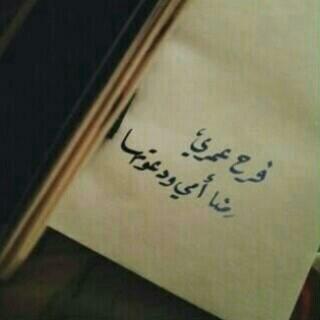 فرح عمري؛
رضا أمي ودعوتها